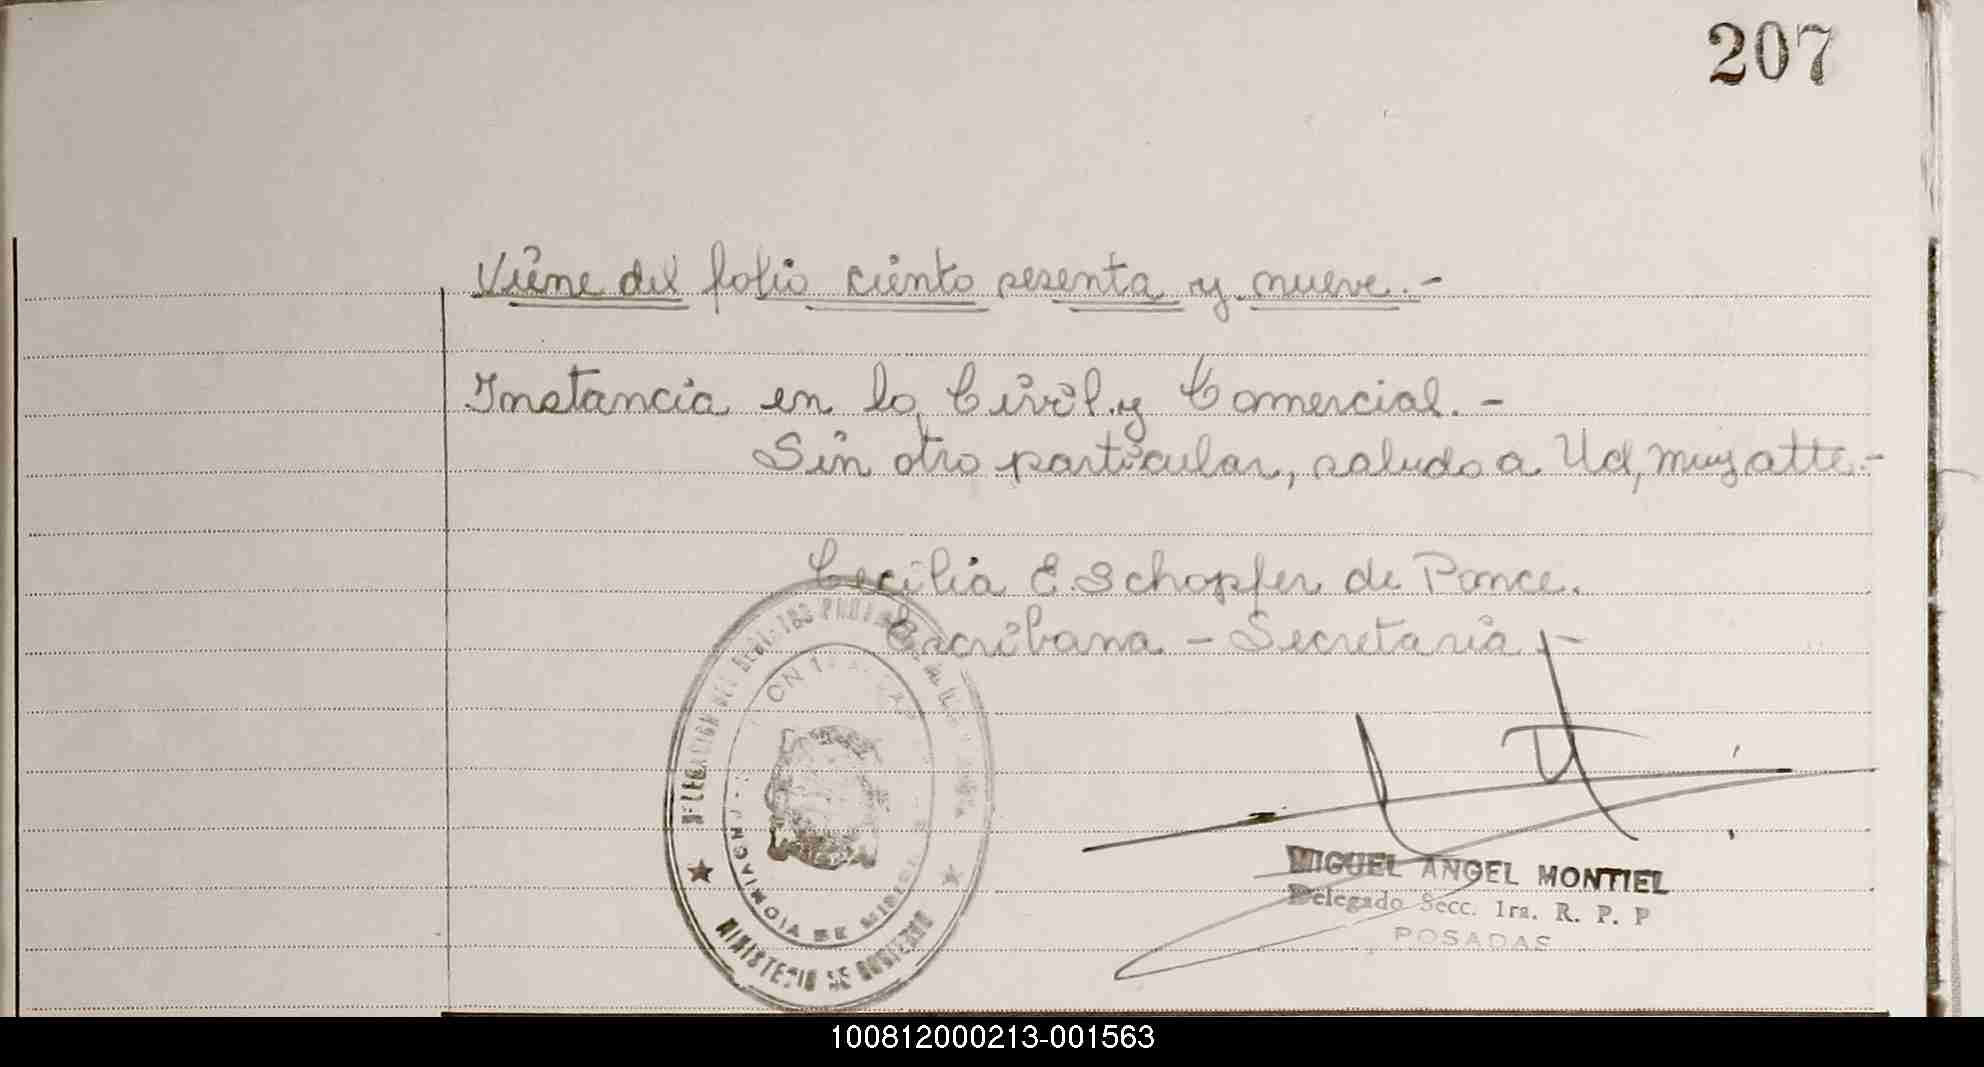 207
Viene del folio ciento sesenta y nueve.-
Instancia en lo Civil y Comercial.-
Sin otro particular, saludo a Ud, muy atte.-
Cecilia E. Schopfer de Ponce.
Escribana - Secretaria -
PROVINCIA DE MISIONES
MINISTERIO DE GOBIERNO
MIGUEL ANGEL MONTIEL
Delegado Secc. 1ra. R. P. P
POSADAS
100812000213-001563